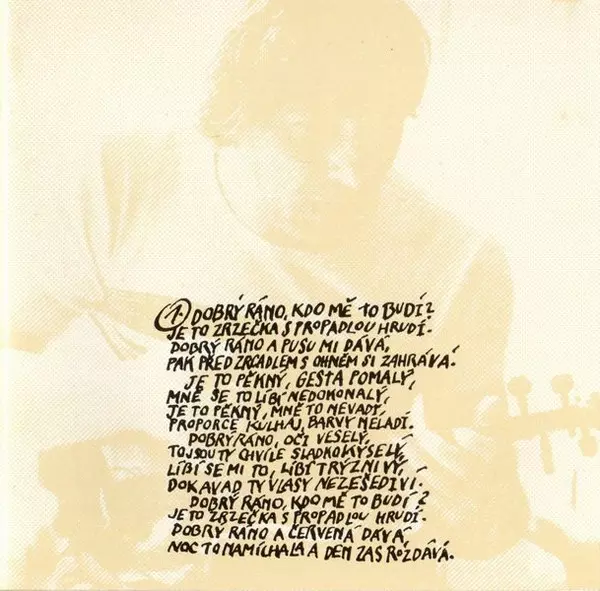 1 DOBRÝ RÁNO, KDO MĚ TO BUDÍ?
JE TO ZRZEČKA S PROPADLOU HRUDÍ.
DOBRÝ RÁNO A PUSU MI DÁVÁ,
PAK PŘED ZRCADLEM S OHNĚM SI ZAHRÁVÁ.
JE TO PĚKNÝ, GESTA POMALÝ,
MNĚ SE TO LÍBÍ NEDOKONALÝ,
JE TO PĚKNÝ, MNĚ TO NEVADÍ,
PROPORCE KULHAJ, BARVY NELADÍ.
DOBRÝ RÁNO, OČI VESELÝ,
TO JSOU TY CHVÍLE SLADKOKYSELÝ,
LÍBÍ SE MI TO, LÍBÍ TRÝZNIVÝ,
DOKAVAD TY VLASY NEZEŠEDIVÍ.
DOBRÝ RÁNO, KDO MĚ TO BUDÍ?
JE TO ZRZEČKA S PROPADLOU HRUDÍ.
DOBRÝ RÁNO A ČERVENÁ DÁVÁ,
NOC TO NAMÍCHALA A DEN ZAS ROZDÁVÁ.